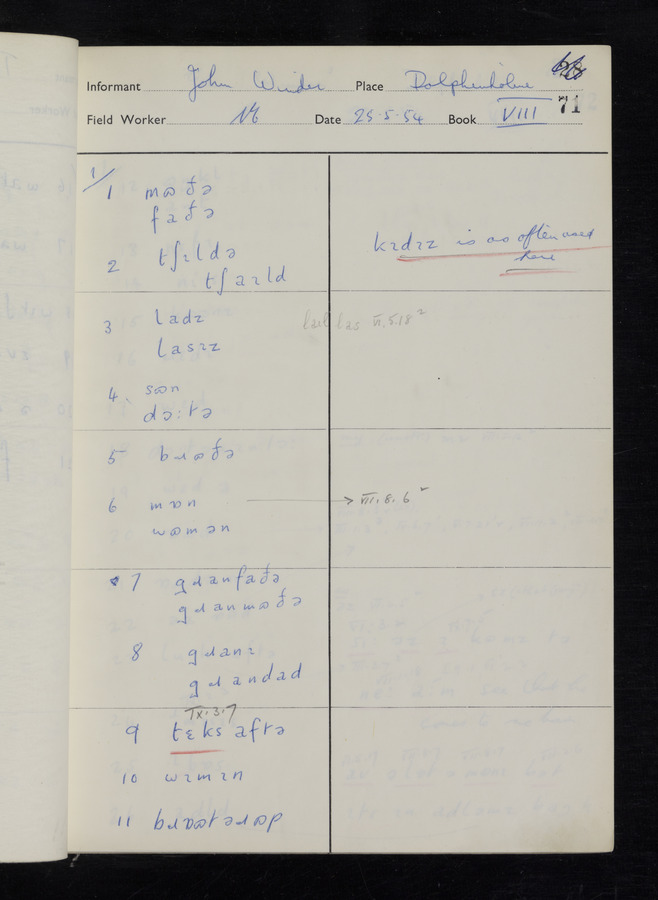 Informant John Winder Place Dolphinholme
Field Worker Date 25.5.54 Book VIII 71
1/
1 mɷðə
faðə
2 tʃɪldə
tʃaɪld
kɪdɪz is as often used
here
3 ladz
lasɪz
lad las VI.5.18²
4. sɷn
dɔ:tə
5 bɹɷðə
6 mɒn → VIII.8.6
wɷmən
7 gɹanfaðə
gɹanmɷðə
8 gɹanɪ
gɹandad
IX.3.7
9 tɛks aftə
10 wɪmɪn
11 bɹɒɷtəɹɷp